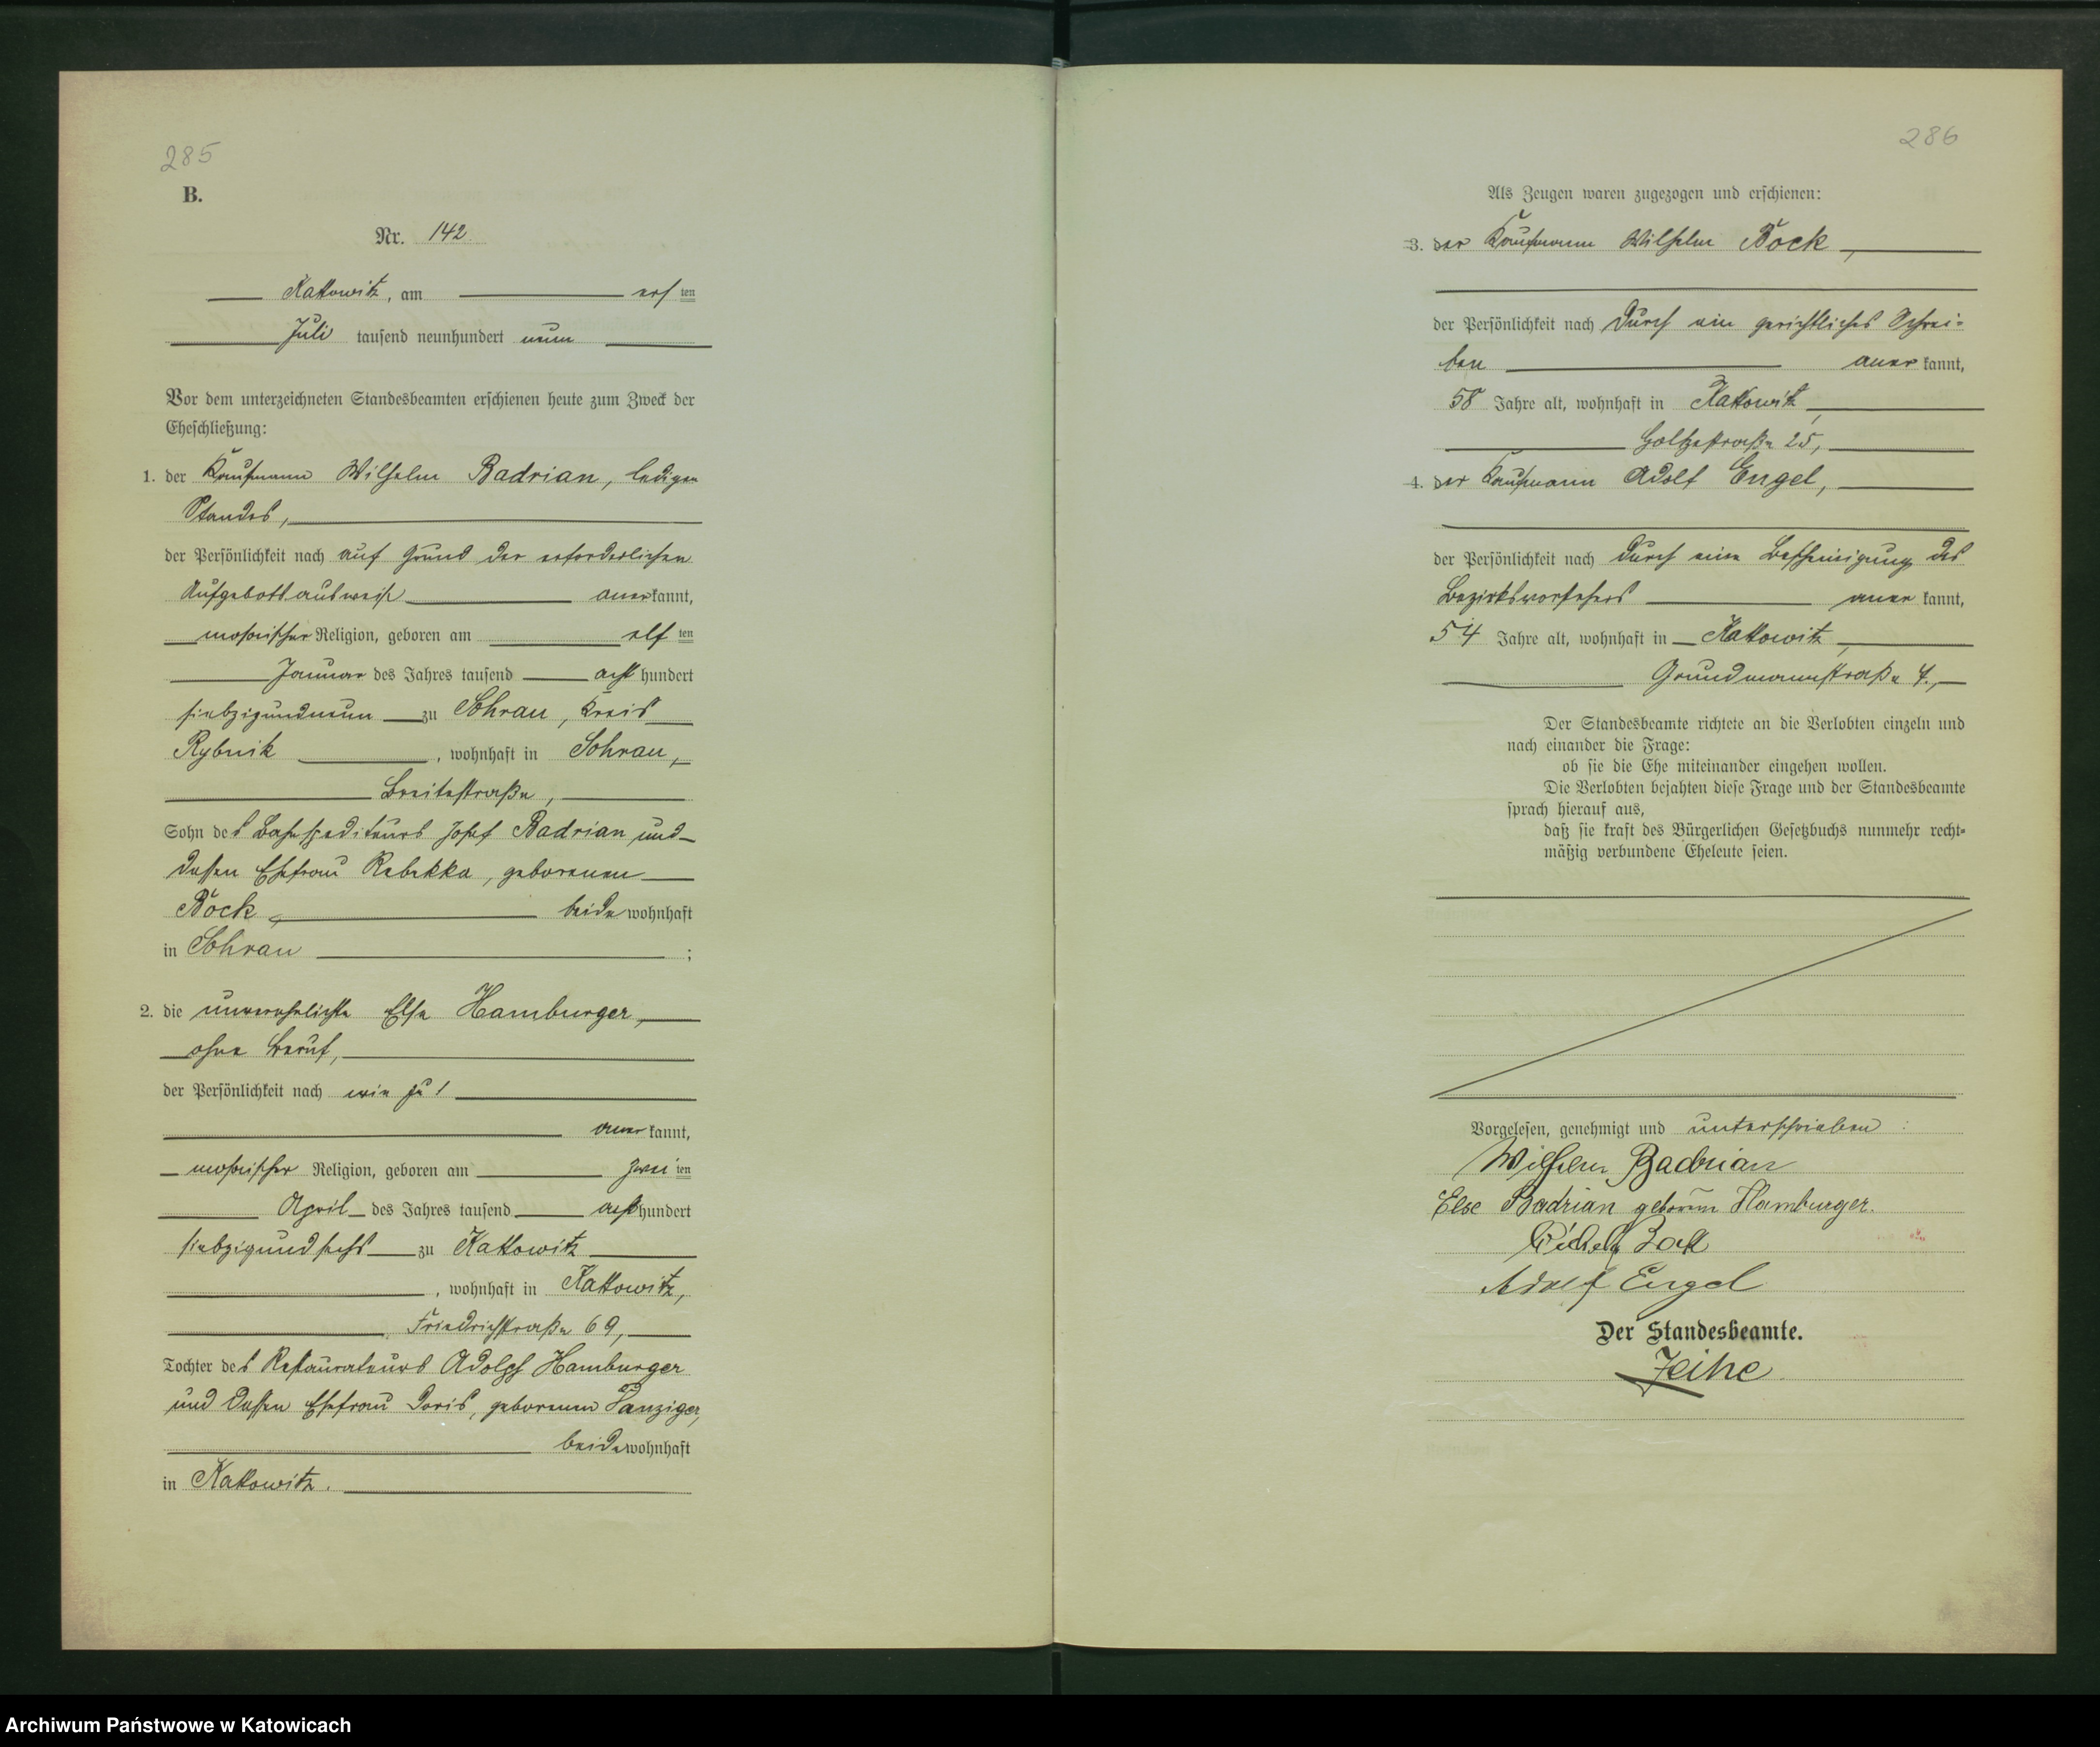 285
B.
Nr. 142
Kattowitz, am ersten
Juli tausend neunhundert neun
Vor dem unterzeichneten Standesbeamten erschienen heute zum Zweck der
Eheschließung:
1. der Kaufmann Wilhelm Badrian, ledigen
Standes,
der Persönlichkeit nach auf Grund der erforderlichen
Aufgebotsausweise anerkannt,
mosaischer Religion, geboren am elften
Januar des Jahres tausend achthundert
siebzigundneun zu Sohrau, Kreis
Rybnik, wohnhaft in Sohrau,
Breitestraße,
Sohn des Bahnspediteurs Josef Badrian und
dessen Ehefrau Rebekka, geborenen
Böck, beide wohnhaft
in Sohrau;
2. die unverehelichte Else Hamburger,
ohne Beruf,
der Persönlichkeit nach wie zu 1
anerkannt,
mosaischer Religion, geboren am zweiten
April des Jahres tausend achthundert
siebzigundsechs zu Kattowitz
, wohnhaft in Kattowitz,
Friedrichstraße 69,
Tochter des Restaurateurs Adolph Hamburger
und dessen Ehefrau Doris, geborenen Danziger,
beide wohnhaft
in Kattowitz.
286
Als Zeugen waren zugezogen und erschienen:
3. der Kaufmann Wilhelm Böck,
der Persönlichkeit nach durch ein gerichtliches Schrei-
ben anerkannt,
58 Jahre alt, wohnhaft in Kattowitz,
Holtzestraße 25,
4. der Kaufmann Adolf Engel,
der Persönlichkeit nach durch eine Bescheinigung des
Bezirksvorstehers anerkannt,
54 Jahre alt, wohnhaft in Kattowitz,
Grundmannstraße 4.,
Der Standesbeamte richtete an die Verlobten einzeln und
nach einander die Frage:
ob sie die Ehe miteinander eingehen wollen.
Die Verlobten bejahten diese Frage und der Standesbeamte
sprach hierauf aus,
daß sie kraft des Bürgerlichen Gesetzbuchs nunmehr recht-
mäßig verbundene Eheleute seien.
Vorgelesen, genehmigt und unterschrieben:
Wilhelm Badrian
Else Badrian geborene Hamburger.
Adolf Engel
Der Standesbeamte.
Archiwum Państwowe w Katowicach